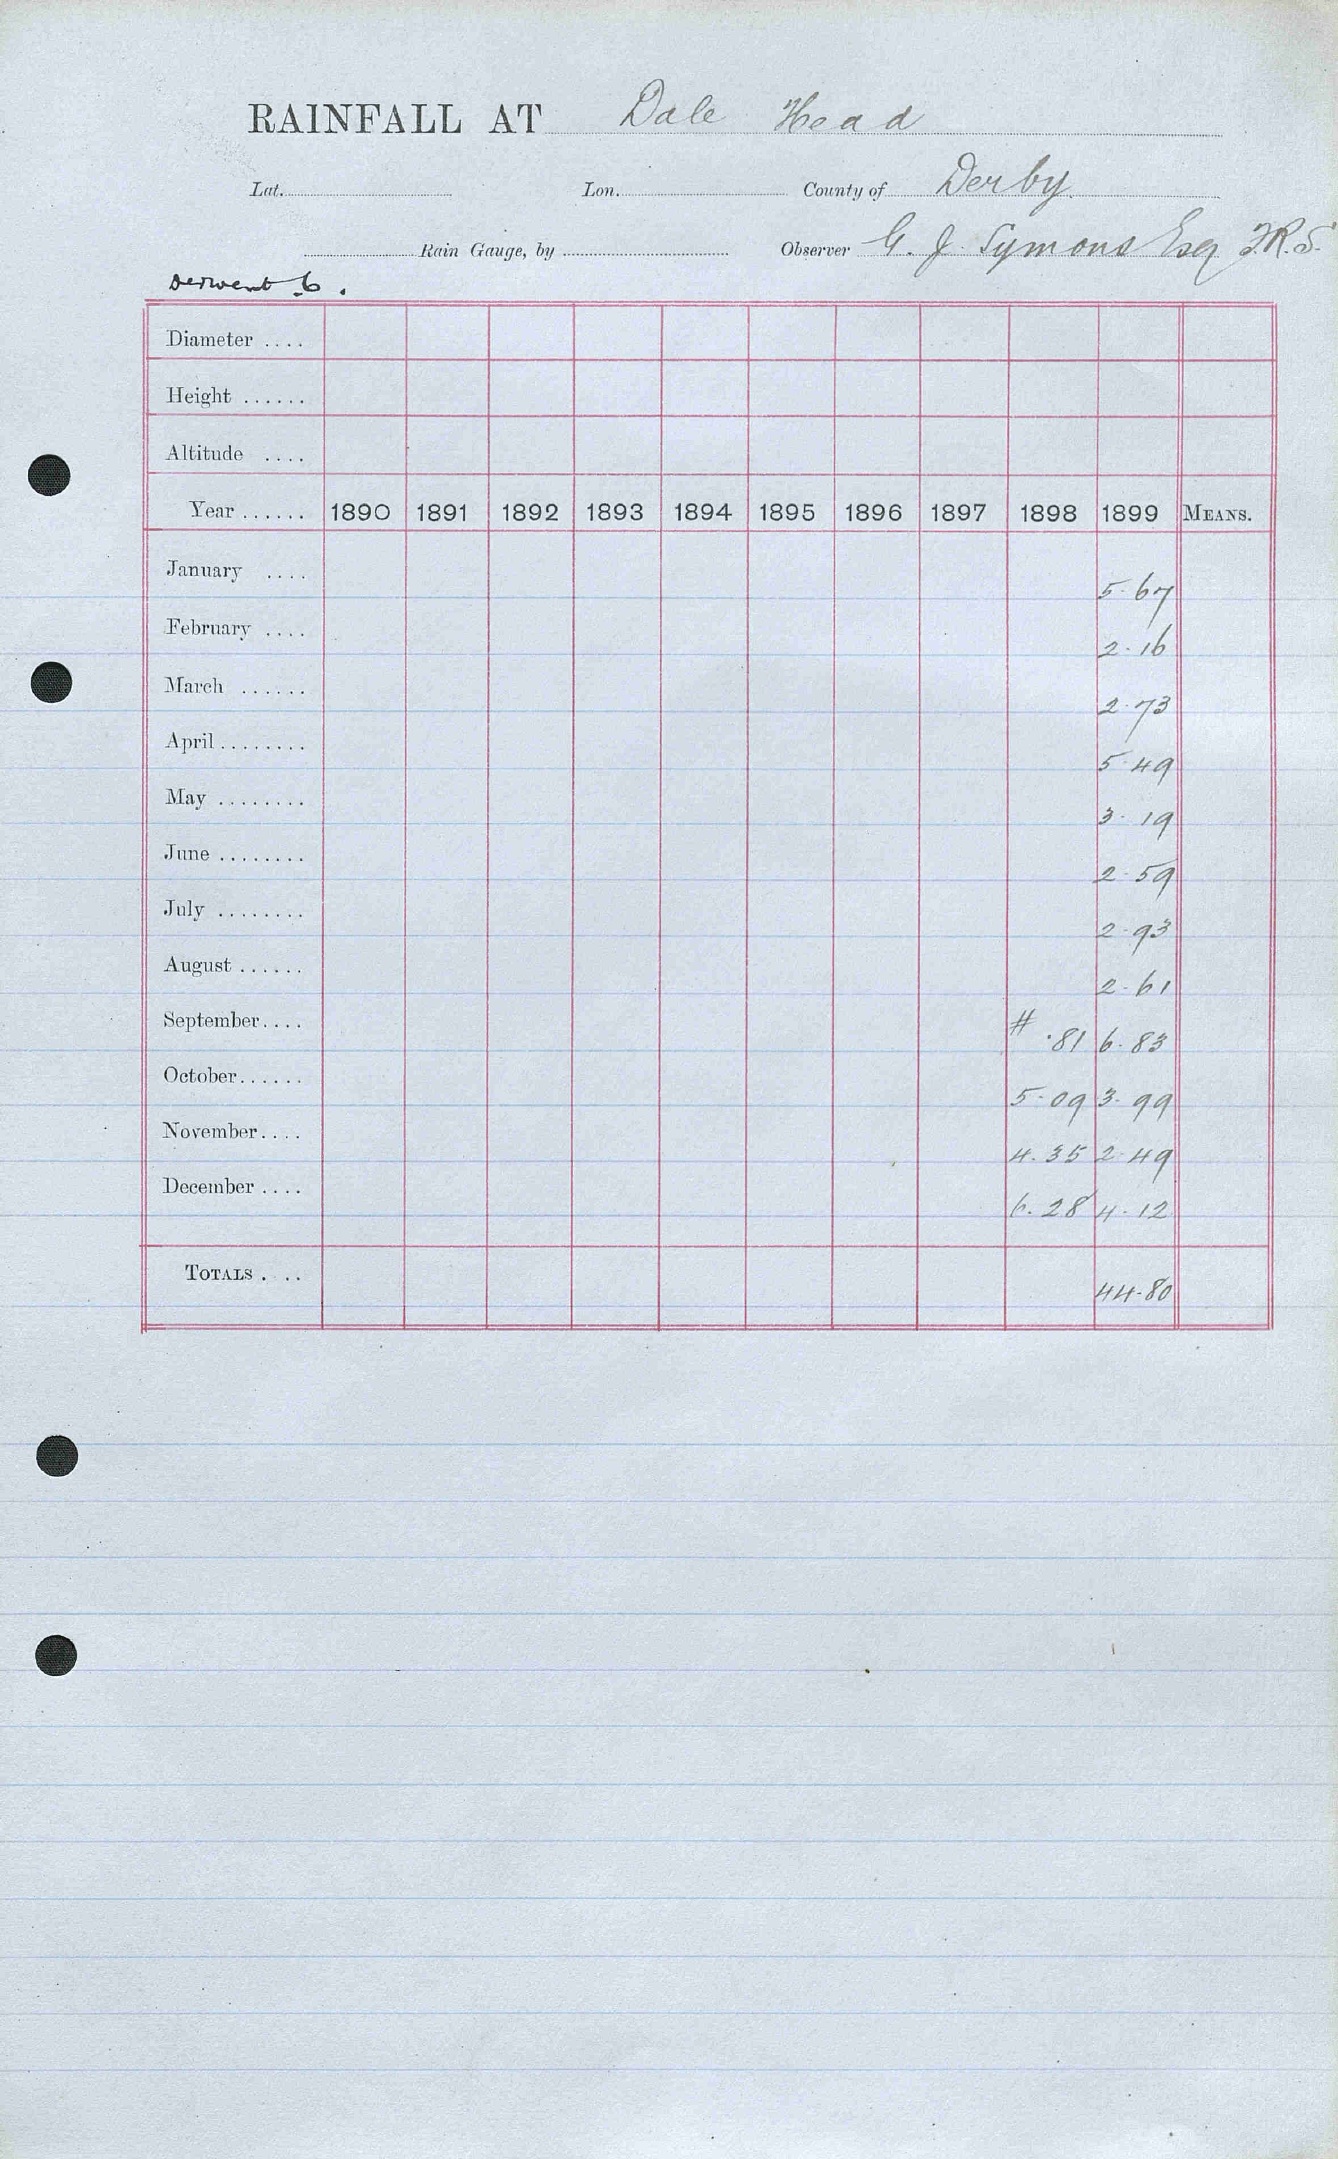 RAINFALL AT Dale Head
Lat. Lon. County of Derby
Rain Gauge, by Observer G. J. Symons Esq F.R.S.
Derwent 6.
Diameter ....
Height ......
Altitude ....
Year ...... 1890 1891 1892 1893 1894 1895 1896 1897 1898 1899 MEANS.
January .... 5.67
February .... 2.16
March ...... 2.73
April ........ 5.49
May ........ 3.19
June ........ 2.59
July ........ 2.93
August ...... 2.61
September .... # .81 6.83
October ...... 5.09 3.99
November .... 4.35 2.49
December .... 6.28 4.12
TOTALS . .. 44.80